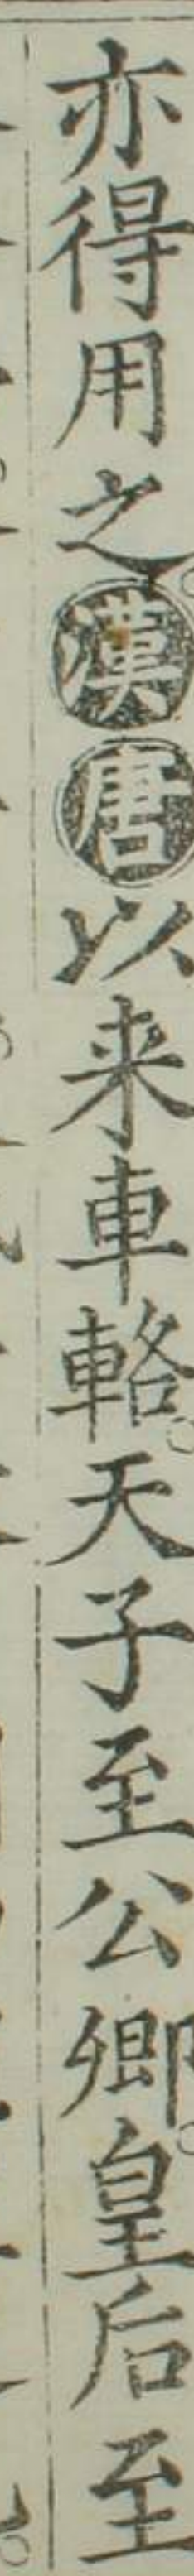 亦得用之。漢唐以来車輅。天子至公卿。皇后至